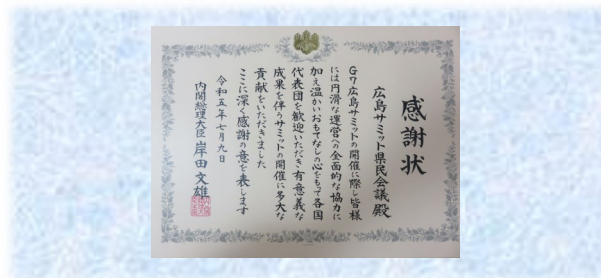 感謝状
広島サミット県民会議殿
G7広島サミットの開催に際し皆様
には円滑な運営への全面的な協力に
加え温かいおもてなしの心をもって各国
代表団を歓迎いただき有意義な
成果を伴うサミットの開催に多大な
貢献をいただきました
ここに深く感謝の意を表します
令和五年七月九日
内閣総理大臣 岸田文雄